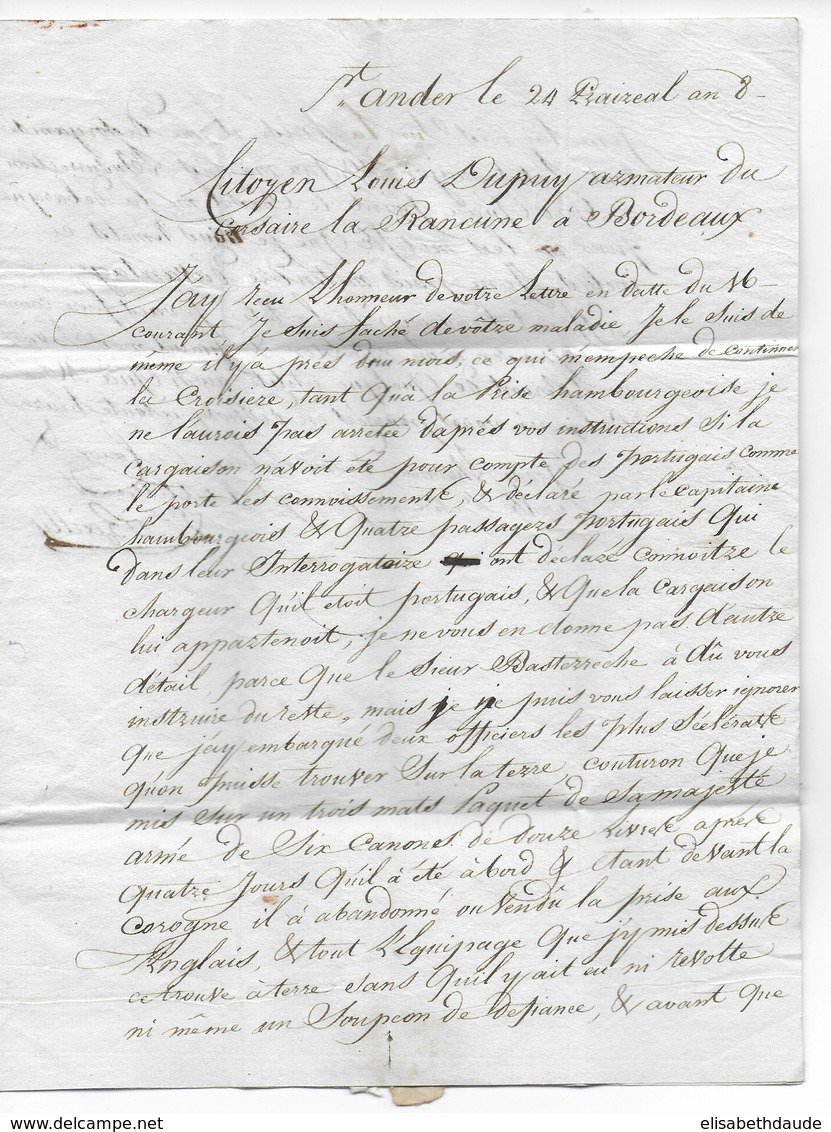 St. ander le 24 Prairéal an 8-
Citoyen Louis Dupuy armateur du
Corsaire la Rancune à Bordeaux
J'ay recu L'honneur de votre Lettre en datte du 16
courant, Je suis faché de vôtre maladie Je le suis de
même il y'a prés d'un mois, ce qui m'empeche de continuer
la Croisiere, tant Qu'à la Prise hambourgeoise je
ne l'aurois pas arretée d'aprés vos instructions si la
cargaison n'avoit été pour compte des Portugais comme
le porte les connoissements, & déclaré par le capitaine
hambourgeois & Quatre passagers Portugais Qui
dans leur Interrogatoire ont déclaré connoitre le
chargeur Qu'il etoit portugais, & Que la cargaison
lui appartenoit, je ne vous en donne pas d'autre
détail, parce Que le Sieur Basterreche à dû vous
instruire du reste, mais je ne puis vous laisser ignorer
que j'ay embarqué deux officiers les plus scélérats
qu'on puisse trouver sur la terre, couturon Que je
mis sur un trois mats Paquet de Sa majesté
armé de Six canons de douze Livres aprés
Quatre Jours Qu'il à été à bord & etant devant la
corogne il à abandonné ou vendû la prise aux
Anglais, & tout L'Equipage Que j'y mis dessus
ce trouve à terre sans Qu'il y ait eu ni revolte
ni même un Soupcon de defiance, & avant que
elisabethdaude